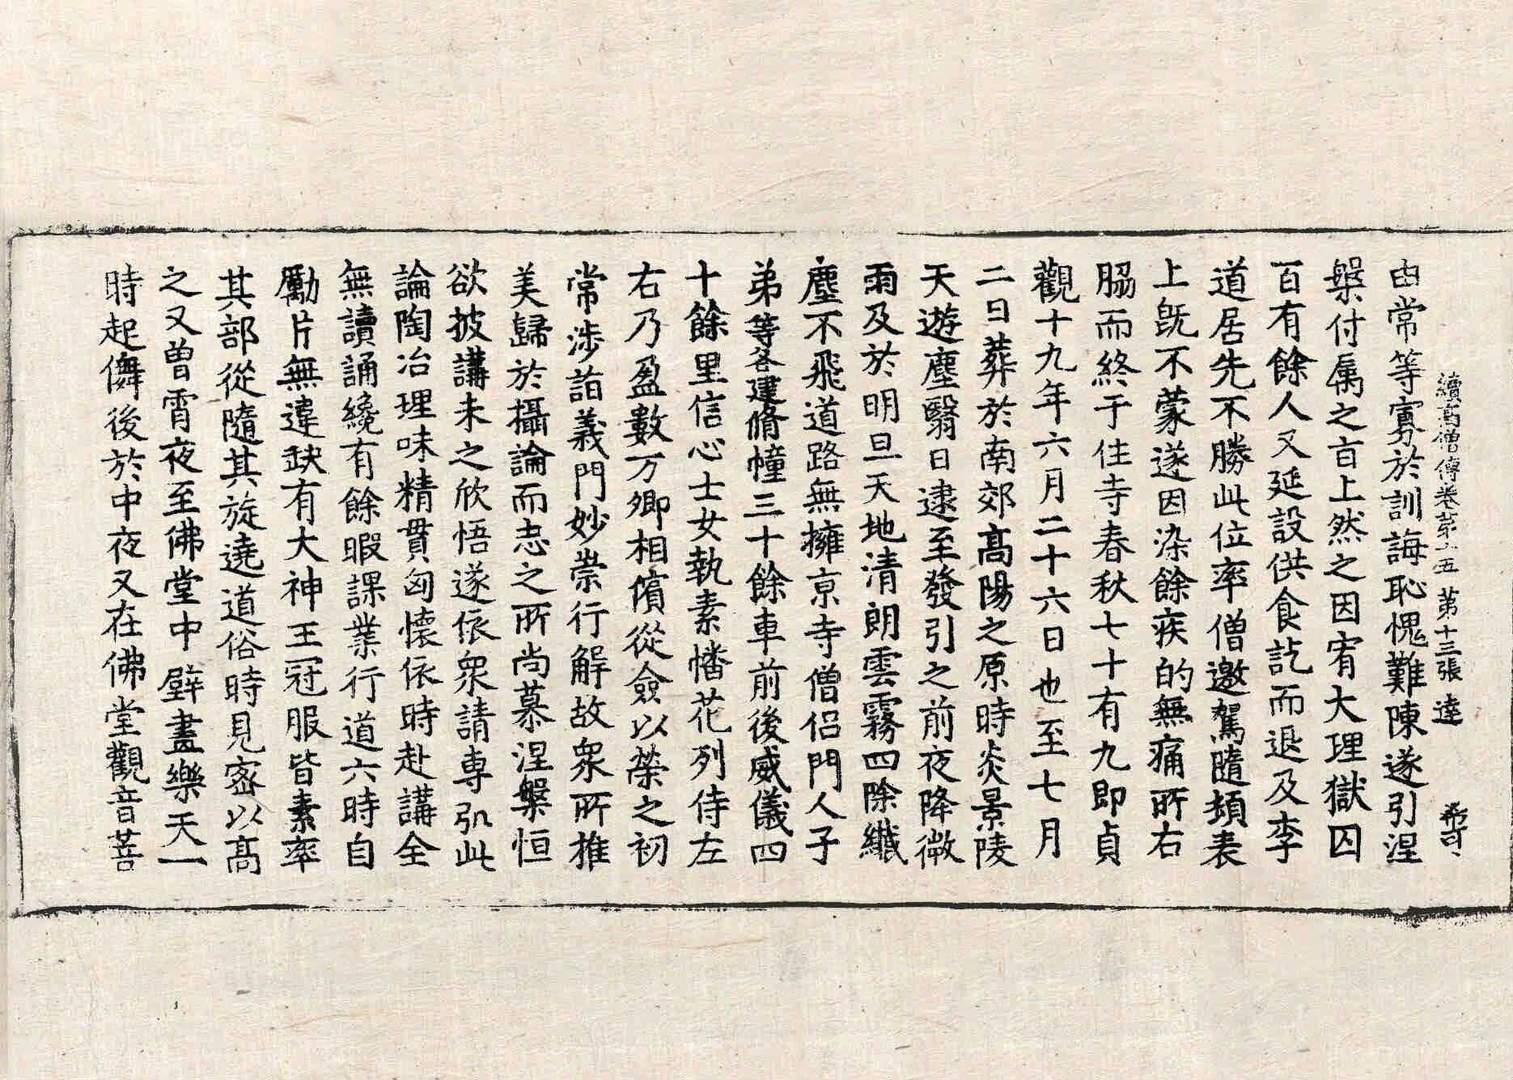 續高僧傳卷第十五　第十三張　達
由常等寡於訓誨恥愧難陳遂引涅
槃付属之言上然之因宥大理獄囚
百有餘人又延設供食訖而退及李
道居先不勝此位率僧邀駕隨頓表
上旣不蒙蒙遂因染餘疾的無痛所右
脇而終于住寺春秋七十有九即貞
觀十九年六月二十六日也至七月
二日葬於南郊高陽之原時炎景陵
天遊塵翳日逮至發引之前夜降微
雨及於明旦天地清朗雲霧四除纖
塵不飛道路無擁京寺僧侣門人子
弟等各建脩幢三十餘車前後威儀四
十餘里信心士女執素幡花列侍左
右乃盈數万卿相儐從僉以榮之初
常涉詣義門妙崇行解故衆所推
美歸於攝論而志之所尚慕涅槃恒
欲披講未之欣悟遂依衆請專弘此
論陶冶理味精貫匈懷依時赴講全
無讀誦纔有餘暇課業行道六時自
勵片無違缺有大神王冠服皆素率
其部從隨其旋遶道俗時見密以高
之又曾宵夜至佛堂中壁畫樂天一
時起儛後於中夜又在佛堂觀音菩